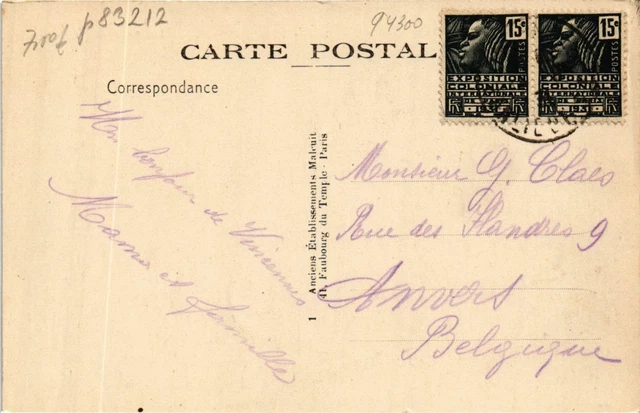 p83212
94300
CARTE POSTALE
Correspondance
15c
POSTES
EXPOSITION
COLONIALE
INTERNATIONALE
RF
15c
POSTES
EXPOSITION
COLONIALE
INTERNATIONALE
RF
Un bonjour de Vincennes
Mama et famille
1 Anciens Établissements Malcuit
41, Faubourg du Temple - Paris
Monsieur G. Claes
Rue des Flandres 9
Anvers
Belgique